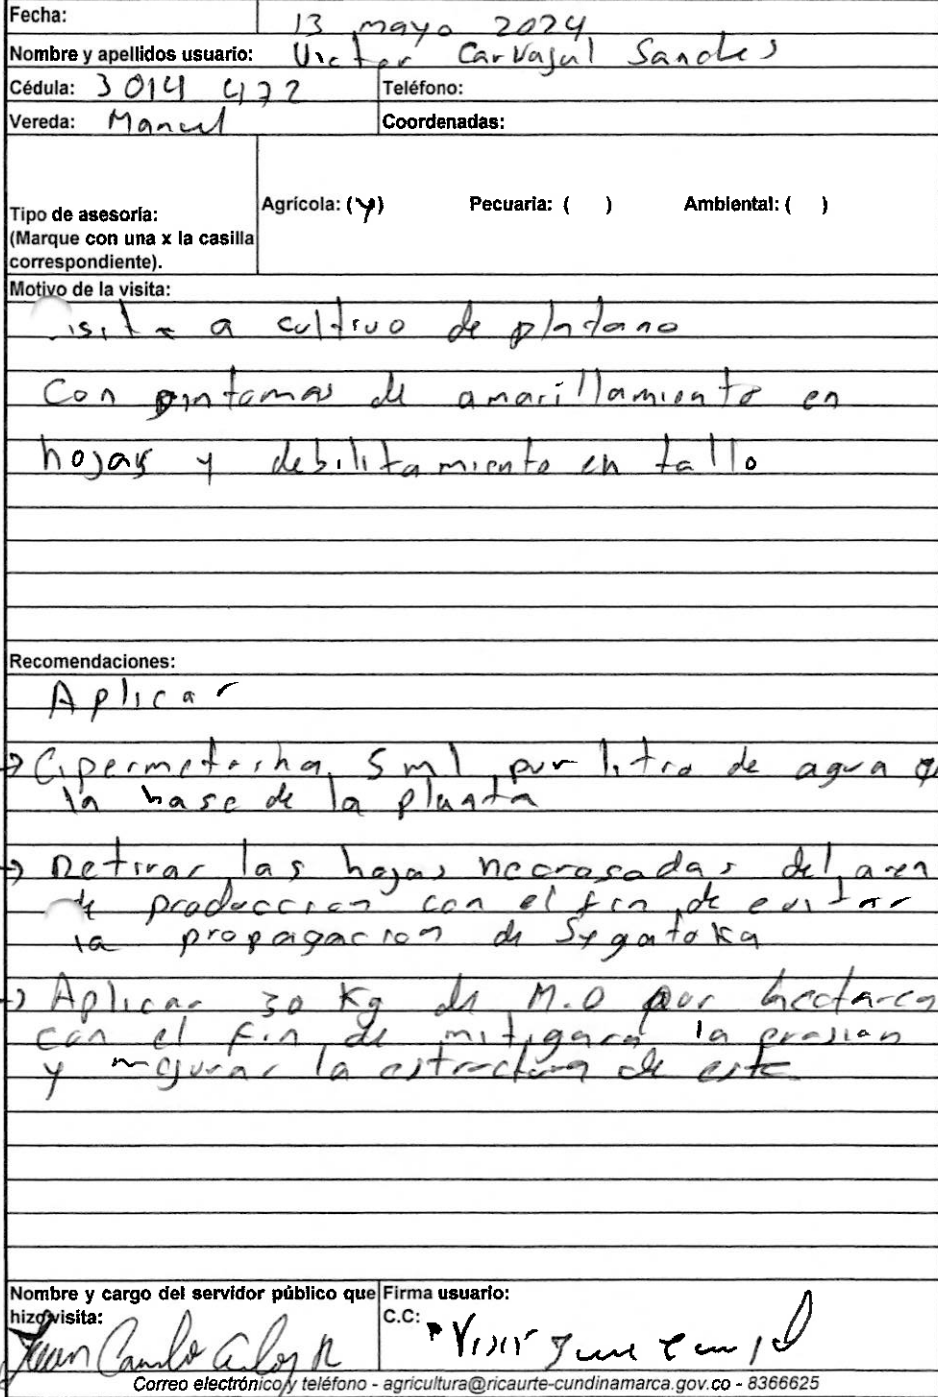 Fecha: 13 mayo 2024
Nombre y apellidos usuario: Victor Carvajal Sanches
Cédula: 3014 472 Teléfono:
Vereda: Manuel Coordenadas:
Tipo de asesoría:
(Marque con una x la casilla
correspondiente).
Agrícola: (x) Pecuaria: ( ) Ambiental: ( )
Motivo de la visita:
visita a cultivo de platano
Con sintomas de amarillamiento en
hojas y debilitamiento en tallo
Recomendaciones:
Aplicar
→ Cipermetrina 5 ml por litro de agua a
la base de la planta
→ Retirar las hojas necrosadas del area
de produccion con el fin de evitar
la propagacion de Sygatoka
→ Aplicar 30 Kg de M.O por hectarea
con el fin de mitigara la erosion
y mejorar la estructura de este
Nombre y cargo del servidor público que
hizo visita: Juan Camilo
Firma usuario:
C.C:
Correo electrónico y teléfono - agricultura@ricaurte-cundinamarca.gov.co - 8366625